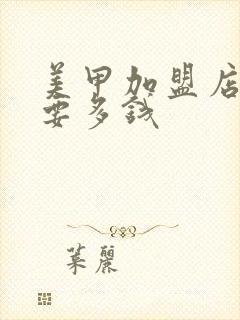 美甲加盟店
要多钱
葉麗